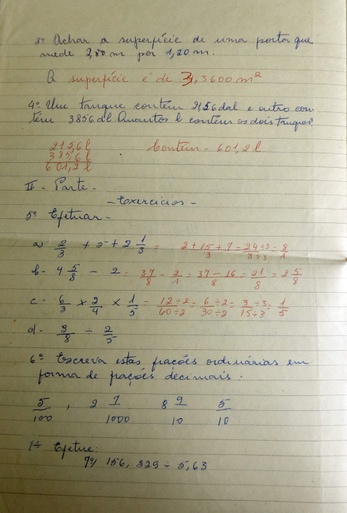 3º Achar a superfície de uma porta que
mede 2,80 m por 1,20 m.
A superfície é de 3,3600 m²
4º Um tanque contém 2156 dal e outro con-
tém 3856 dl Quantos l contem os dois tanques
212,6 l
385,6 l
601,2 l
Contém - 601,2 l
II - Parte -
- Exercícios -
5º Efetuar -
a) 2/3 + 5 + 2 1/3 = 2+15+7/3 - 24÷3/3÷3 = 8/1
b - 4 5/8 - 2 = 37/8 - 2/1 = 37-16/8 = 21/8 = 2 5/8
c - 6/3 x 2/4 x 1/5 = 12÷2/60÷2 = 6÷2/30÷2 = 3÷3/15÷3 = 1/5
d - 3/8 ÷ 2/5
6º Escreva estas frações ordinárias em
forma de frações decimais.
5/100 , 2 7/1000 8 9/10 5/10
Efetue:
156,329 ÷ 5,63